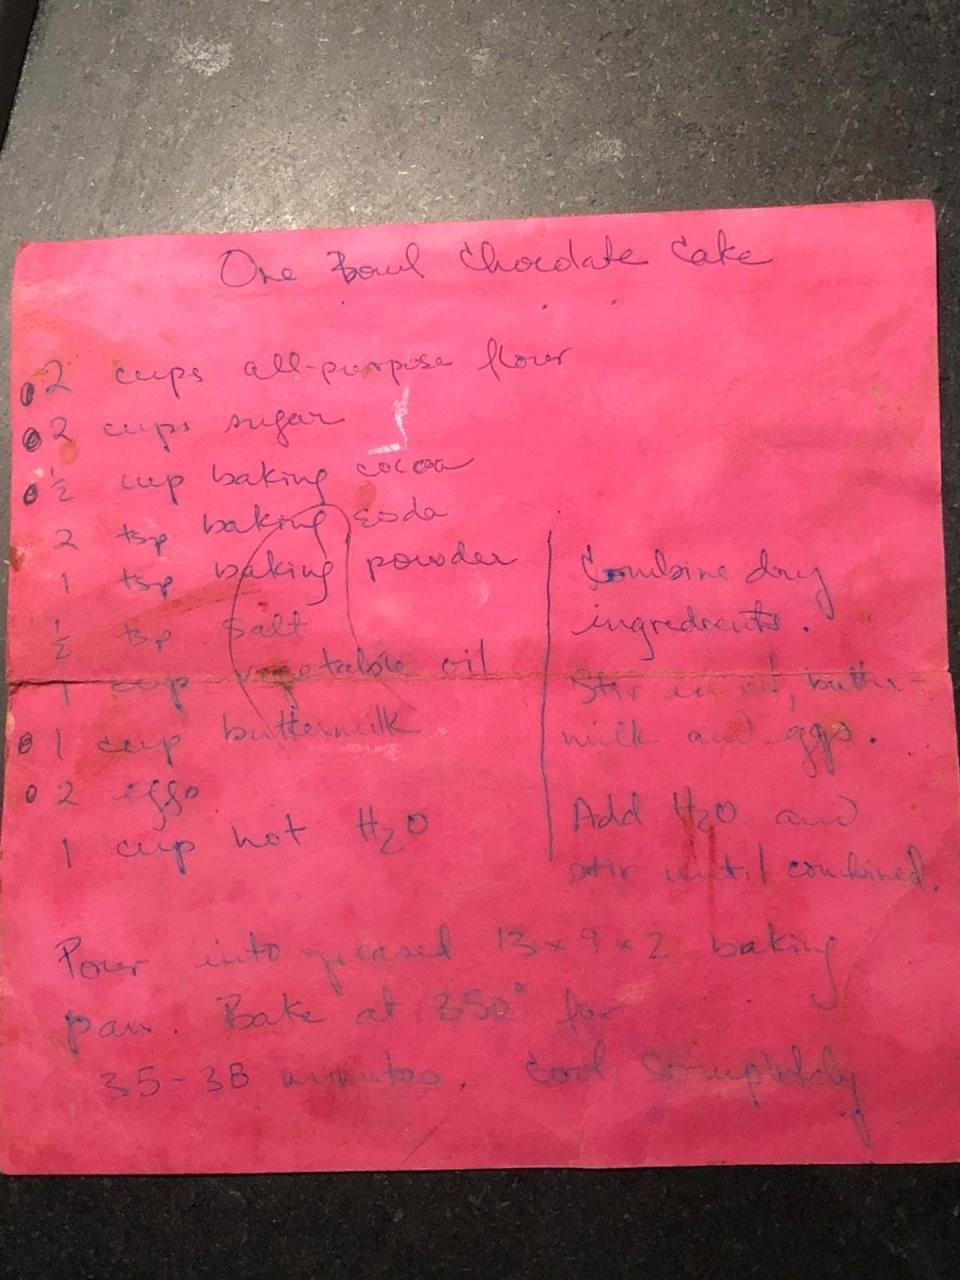 One Bowl Chocolate Cake
2 cups all-purpose flour
2 cups sugar
½ cup baking cocoa
2 tsp baking soda
1 tsp baking powder
½ tsp salt
1 cup vegetable oil
1 cup buttermilk
2 eggs
1 cup hot H₂O
Combine dry
ingredients.
Stir in oil, butter-
milk and eggs.
Add H₂O and
stir until combined.
Pour into greased 13 x 9 x 2 baking
pan. Bake at 350° for
35-38 minutes. Cool Completely